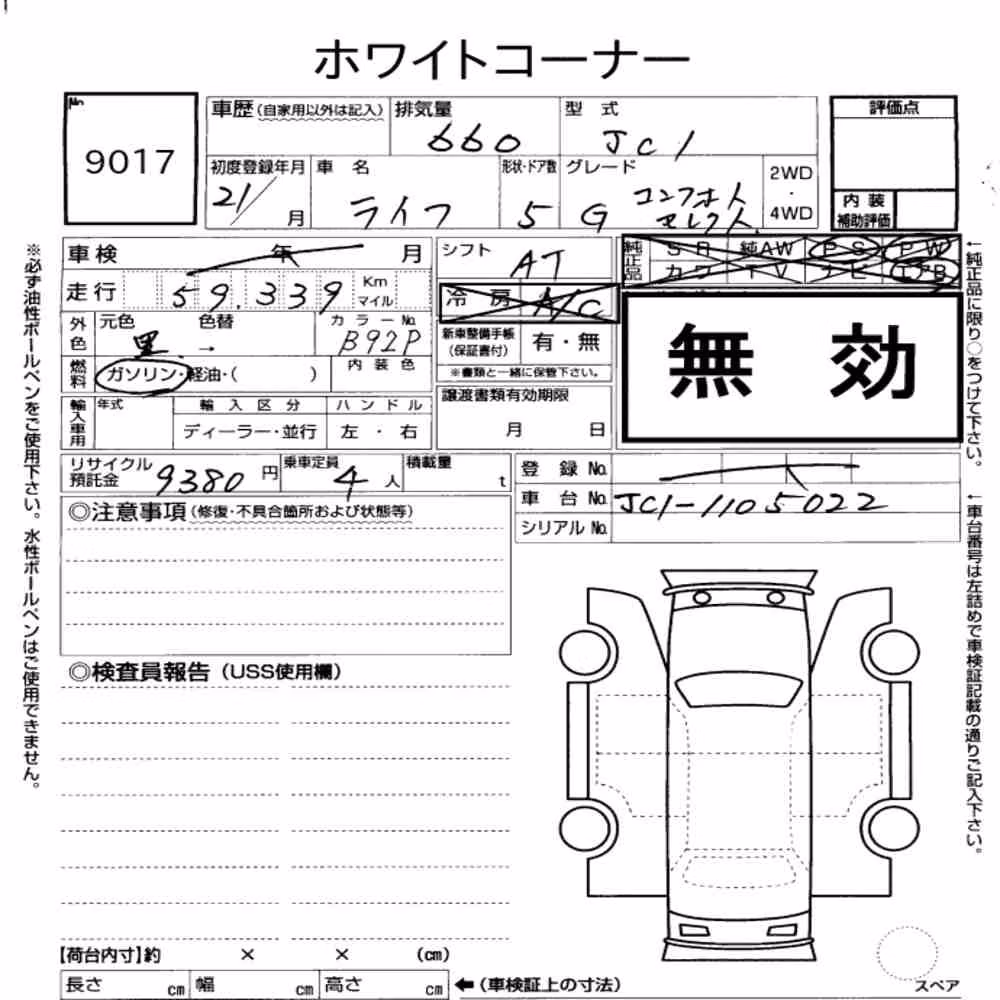 ホワイトコーナー
No.
9017
車歴(自家用以外は記入)
排気量
660
型 式
JC1
評価点
初度登録年月
21/
月
車 名
ライフ
形状・ドア数
5
グレード
G コンフォート
セレクト
2WD
・
4WD
内 装
補助評価
車検 年 月
走行 59,339 Km
マイル
シフト
AT
純正品
SR 純AW PS PW
カワ TV ナビ エアB
冷 房 A/C
無 効
外色
元色
黒
色替
→
カラーNo.
B92P
燃料
ガソリン・軽油・( )
内装色
新車整備手帳
(保証書付)
有・無
※書類と一緒に保管下さい。
輸入車用
年式
輸入区分
ディーラー・並行
ハンドル
左 ・ 右
譲渡書類有効期限
月 日
リサイクル
預託金
9380 円
乗車定員
4 人
積載量
t
登 録 No.
車 台 No.
JC1-1105022
シリアル No.
◎注意事項(修復・不具合箇所および状態等)
◎検査員報告(USS使用欄)
【荷台内寸】約 × × (cm)
長さ cm 幅 cm 高さ cm
←(車検証上の寸法)
スペア
※必ず油性ボールペンをご使用下さい。水性ボールペンはご使用できません。
←純正品に限り○をつけて下さい。
←車台番号は左詰めで車検証記載の通りご記入下さい。